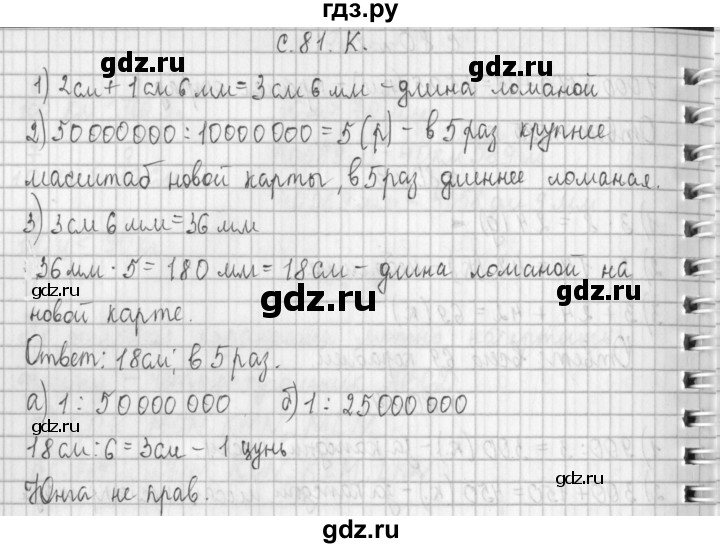 гдз.ру
с.81. К.
gdz.ru gdz.ru
1) 2см + 1см 6мм = 3см 6мм - длина ломаной
2) 50000000 : 10000000 = 5 (р) - в 5 раз крупнее
масштаб новой карты, в 5 раз длиннее ломаная.
3) 3см 6мм = 36мм
36мм · 5 = 180мм = 18см - длина ломаной на
gdz.ru gdz.ru gdz.ru
новой карте.
Ответ: 18см; в 5 раз.
а) 1 : 50000000 б) 1 : 25000000
gdz.ru gdz.ru
18см : 6 = 3см - 1 цунь
Юнга не прав.
gdz.ru